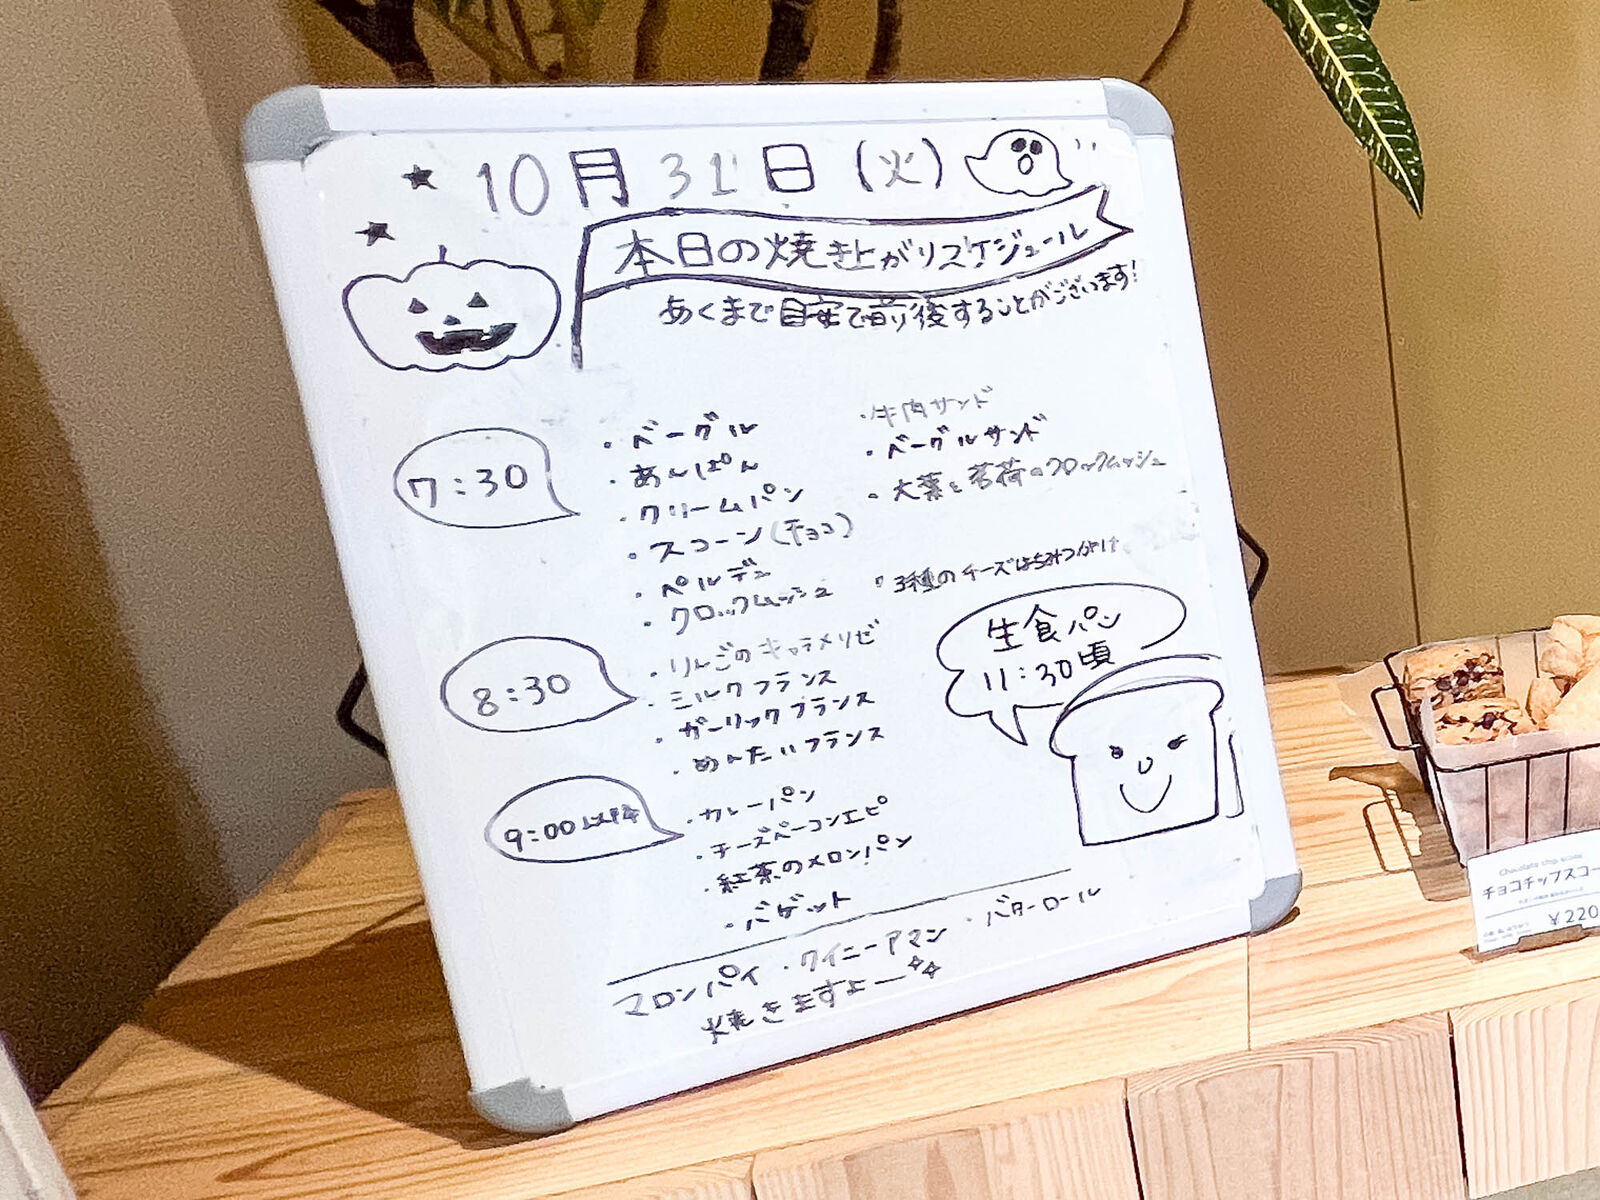 10月31日(火)
本日の焼き上がりスケジュール
あくまで目安で前後することがございます!
7:30
・ベーグル
・あんぱん
・クリームパン
・スコーン(チョコ)
・ペルデン
・クロックムッシュ
・牛肉サンド
・ベーグルサンド
・大葉と茗荷のクロックムッシュ
・3種のチーズはちみつがけ
8:30
・りんごのキャラメリゼ
・ミルクフランス
・ガーリックフランス
・めんたいフランス
生食パン
11:30頃
9:00以降
・カレーパン
・チーズベーコンエピ
・紅茶のメロンパン
・バゲット
マロンパイ・クイニーアマン・バターロール
焼きますよー
Chocolate chip scone
チョコチップスコー
¥220